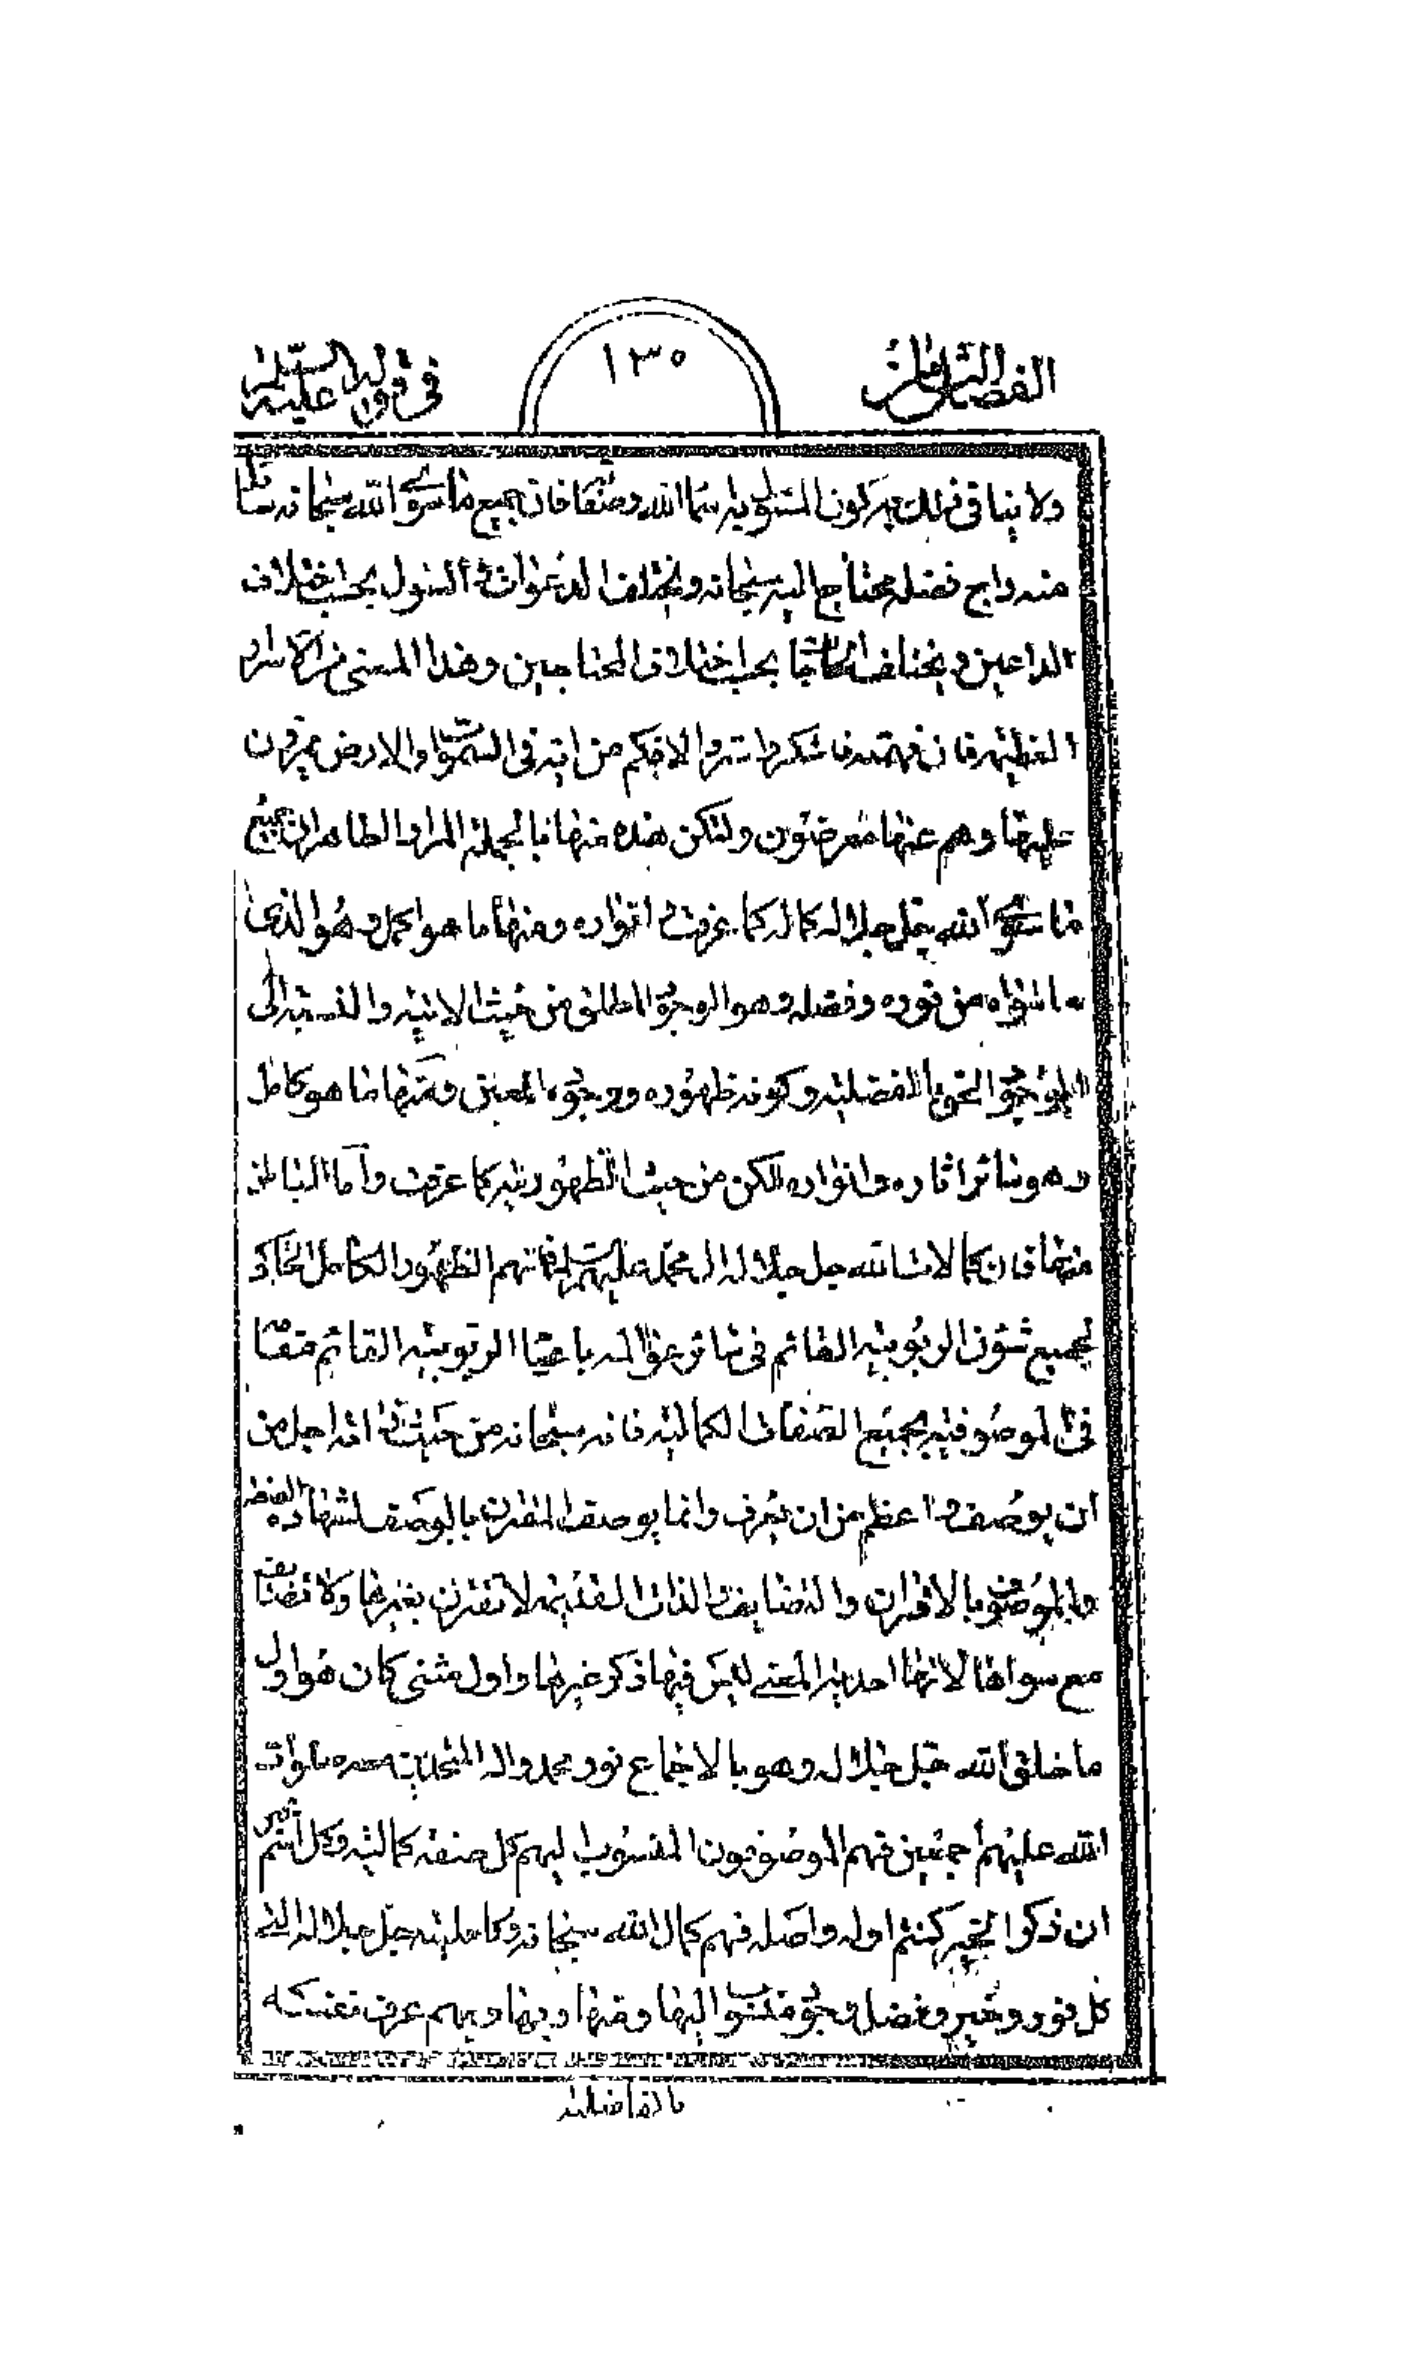 الفصل الثامن
١٣٥
في قوله عليه السلام
ولا ينافي ذلك كون المسئولية سما الله وصفة فان جميع ما سوى الله سبحانه سائل
منه راج فضله محتاج اليه سبحانه ويختلف الدعوات والسئول بحسب اختلاف
الداعين ويختلف الحاجات بحسب اختلاف المحتاجين وهذا المعنى من الاسرار
العظيمة فان فهمته فاشكر واستر والا فكم من اية في السموات والارض يمرون
عليها وهم عنها معرضون ولتكن هذه منها فبالجملة المراد الظاهر ان جميع
ما سوى الله جل جلاله كماله كما عرفت انواره ومنها ما هو اكمل وهو الذي
ما سواه من نوره وفضله وهو الوجود المطلق من حيث الانية والنسبة الى
الوجود بالفضلية وكونه ظهوره ووجوده المعين ومنها ما هو كامل
وهو سائر اثاره وانواره لكن من حيث الظهورية كما عرفت واما الباطن
منها فان كمالات الله جل جلاله ال محمد عليهم السلام فانهم الظهور الكامل الحاوي
لجميع شئون الربوبية القائم في سائر عوالمه باعباء الربوبية القائم مقامه
في الموصوفية بجميع الصفات الكمالية فانه سبحانه من حيث ذاته اجل من
ان يوصف واعظم من ان يعرف وانما يوصف المقترن بالوصف لشهادة الصفة
والموصوف بالاقتران والتضايف والذات القديمة لا تقترن بغيرها ولا تضايف
مع سواها لانها احدية المعنى ليس فيها ذكر غيرها واول مثنى كان هو اول
ما خلق الله جل جلاله وهو بالاجماع نور محمد واله المتحدين معه صلوات
الله عليهم اجمعين فهم الموصوفون المنسوب اليهم كل صفة كمالية وكل اسم خير
ان ذكر الخير كنتم اوله واصله فهم كمال الله سبحانه وكامليته جل جلاله التي
كل نور وخير وفضل وجود منسوب اليها ومنها وبها وبهم عرف نفسه
بالفاضلية